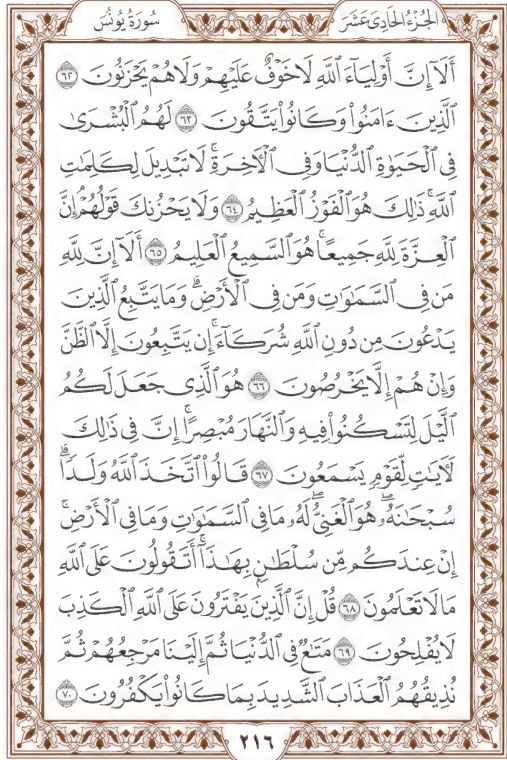 الجُزْءُ الحَادِىَ عَشَرَ سُورَةُ يُونُسَ
أَلَآ إِنَّ أَوْلِيَآءَ ٱللَّهِ لَا خَوْفٌ عَلَيْهِمْ وَلَا هُمْ يَحْزَنُونَ ٦٢
ٱلَّذِينَ ءَامَنُواْ وَكَانُواْ يَتَّقُونَ ٦٣ لَهُمُ ٱلْبُشْرَىٰ
فِى ٱلْحَيَوٰةِ ٱلدُّنْيَا وَفِى ٱلْأَخِرَةِ ۚ لَا تَبْدِيلَ لِكَلِمَٰتِ
ٱللَّهِ ۚ ذَٰلِكَ هُوَ ٱلْفَوْزُ ٱلْعَظِيمُ ٦٤ وَلَا يَحْزُنكَ قَوْلُهُمْ ۘ إِنَّ
ٱلْعِزَّةَ لِلَّهِ جَمِيعًا ۚ هُوَ ٱلسَّمِيعُ ٱلْعَلِيمُ ٦٥ أَلَآ إِنَّ لِلَّهِ
مَن فِى ٱلسَّمَٰوَٰتِ وَمَن فِى ٱلْأَرْضِ ۗ وَمَا يَتَّبِعُ ٱلَّذِينَ
يَدْعُونَ مِن دُونِ ٱللَّهِ شُرَكَآءَ ۚ إِن يَتَّبِعُونَ إِلَّا ٱلظَّنَّ
وَإِنْ هُمْ إِلَّا يَخْرُصُونَ ٦٦ هُوَ ٱلَّذِى جَعَلَ لَكُمُ
ٱلَّيْلَ لِتَسْكُنُواْ فِيهِ وَٱلنَّهَارَ مُبْصِرًا ۚ إِنَّ فِى ذَٰلِكَ
لَأٓيَٰتٍ لِّقَوْمٍ يَسْمَعُونَ ٦٧ قَالُواْ ٱتَّخَذَ ٱللَّهُ وَلَدًا ۗ
سُبْحَٰنَهُۥ ۖ هُوَ ٱلْغَنِىُّ ۖ لَهُۥ مَا فِى ٱلسَّمَٰوَٰتِ وَمَا فِى ٱلْأَرْضِ ۚ
إِنْ عِندَكُم مِّن سُلْطَٰنٍۭ بِهَٰذَآ ۚ أَتَقُولُونَ عَلَى ٱللَّهِ
مَا لَا تَعْلَمُونَ ٦٨ قُلْ إِنَّ ٱلَّذِينَ يَفْتَرُونَ عَلَى ٱللَّهِ ٱلْكَذِبَ
لَا يُفْلِحُونَ ٦٩ مَتَٰعٌ فِى ٱلدُّنْيَا ثُمَّ إِلَيْنَا مَرْجِعُهُمْ ثُمَّ
نُذِيقُهُمُ ٱلْعَذَابَ ٱلشَّدِيدَ بِمَا كَانُواْ يَكْفُرُونَ ٧٠
٢١٦